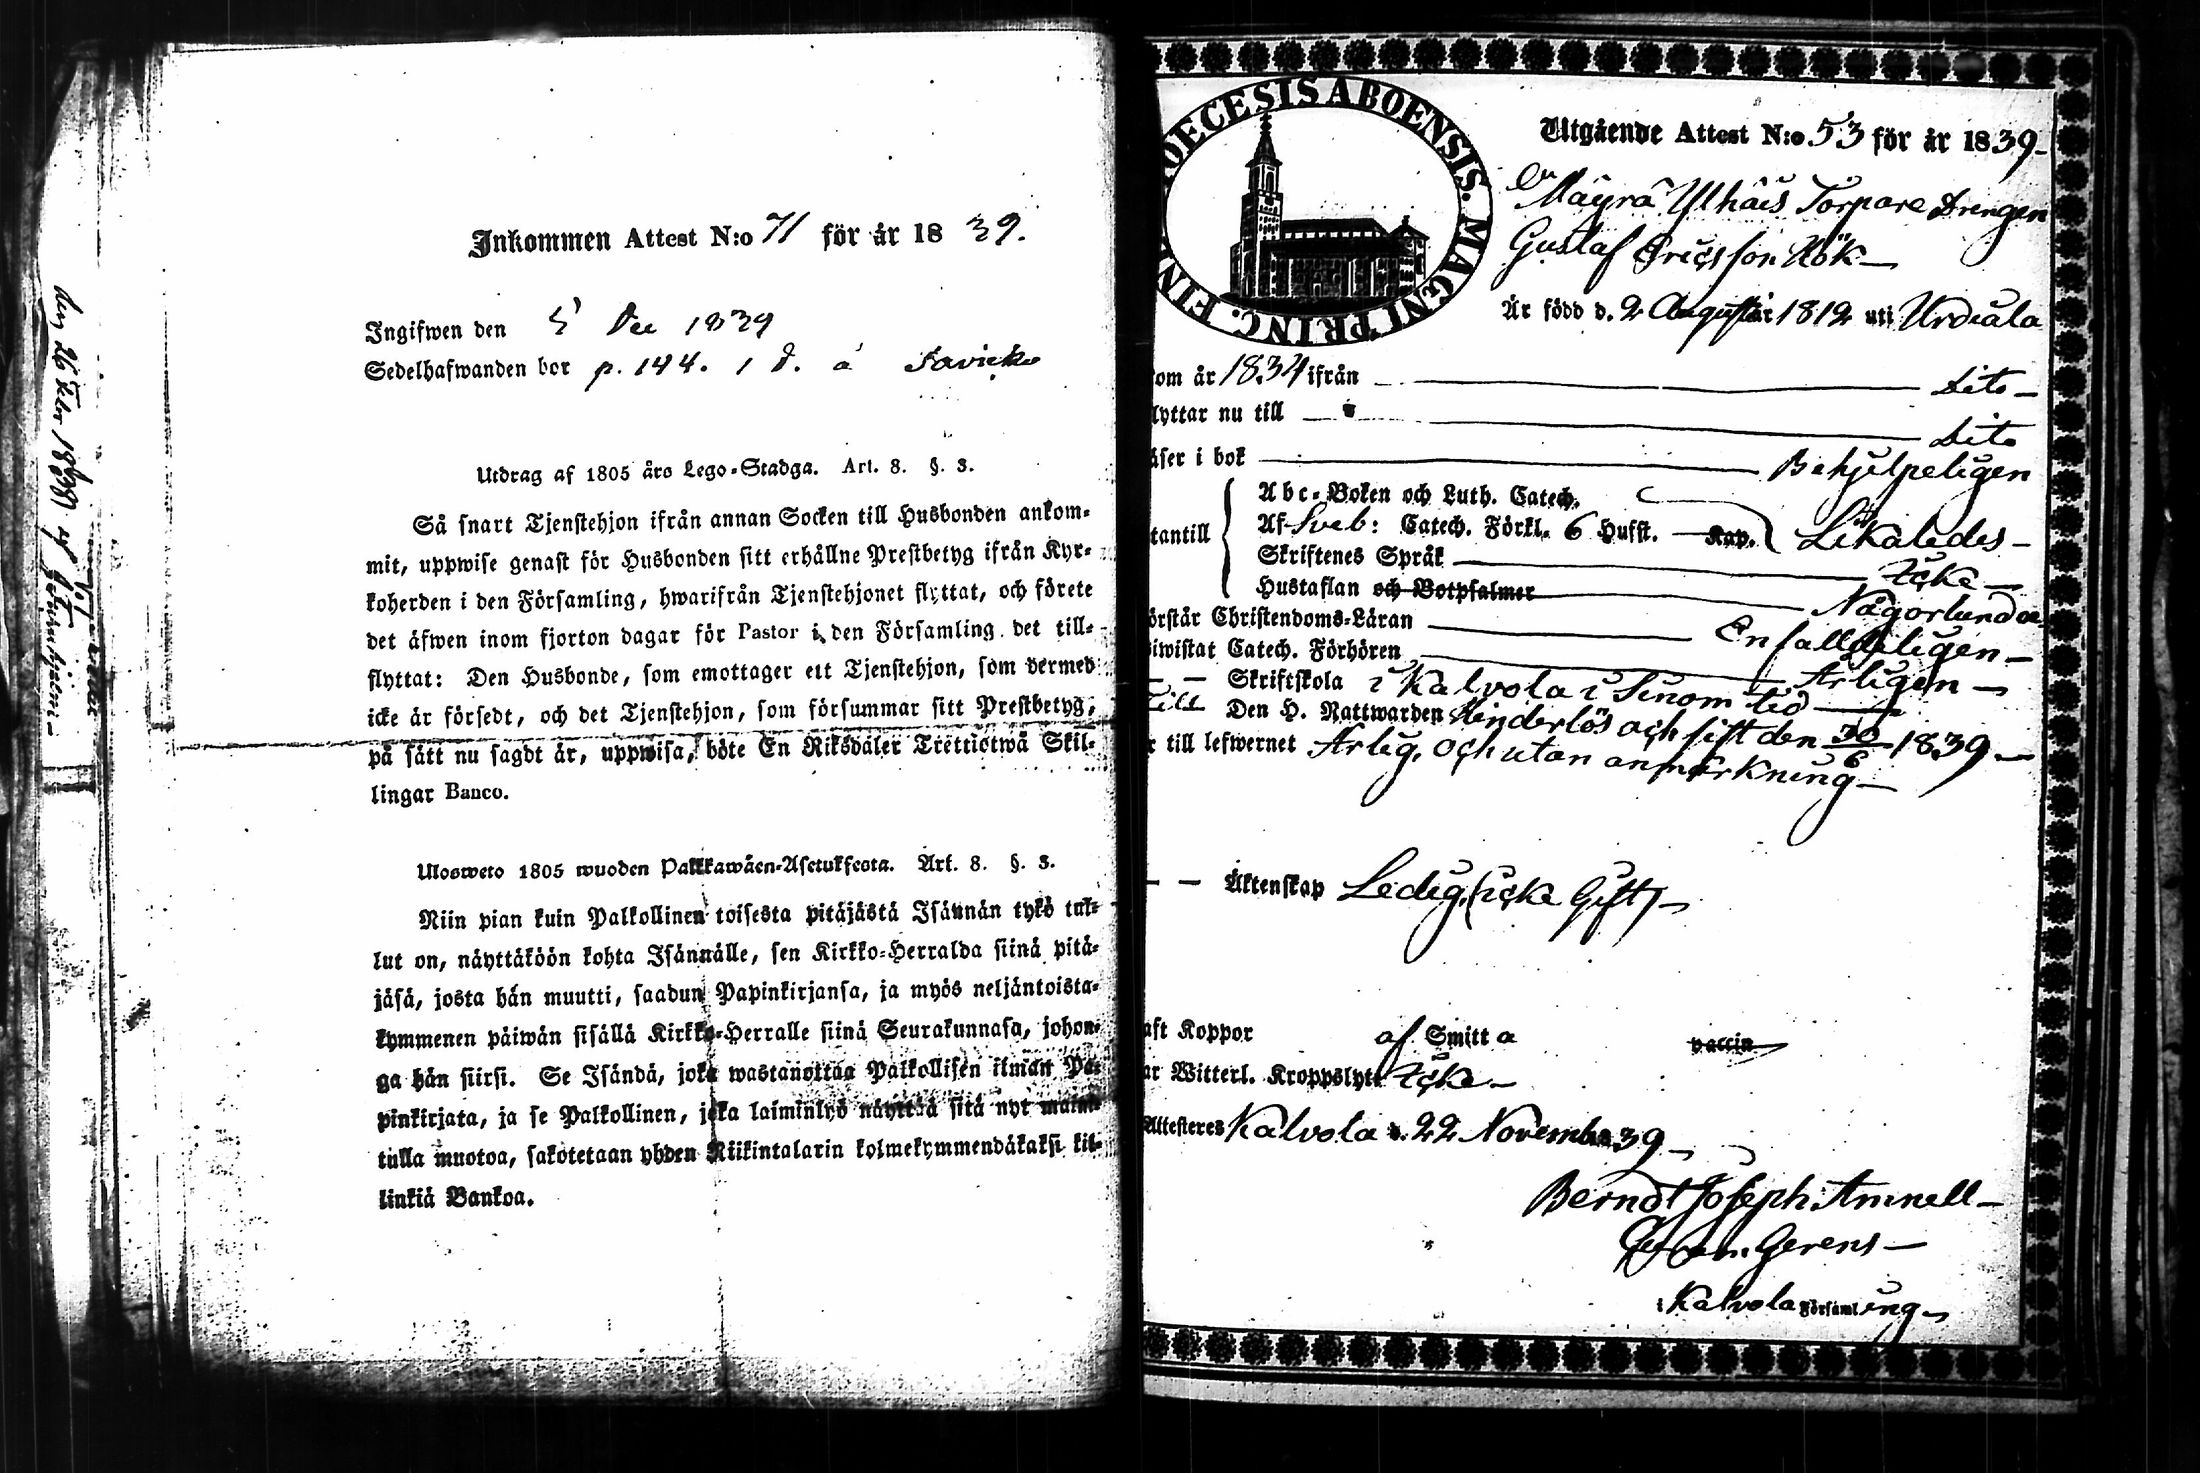 Inkommen Attest N:o 71 för år 1839.
Ingifwen den 5 Dec 1839
Sedelhafwanden bor p. 144. 1 d. å
Utdrag af 1805 års Lego-Stadga. Art. 8. §. 3.
Så snart Tjenstehjon ifrån annan Socken till Husbonden ankom-
mit, uppwise genast för Husbonden sitt erhållne Prestbetyg ifrån Kyr-
koherden i den Församling, hwarifrån Tjenstehjonet flyttat, och förete
det äfwen inom fjorton dagar för Pastor i den Församling det till-
flyttat: Den Husbonde, som emottager ett Tjenstehjon, som dermed
icke är försedt, och det Tjenstehjon, som försummar sitt Prestbetyg,
på sätt nu sagdt är, uppwisa, böte En Riksdaler Trettiotwå Skil-
lingar Banco.
Ulosweto 1805 wuoden Palkkawäen-Asetuksesta. Art. 8. §. 3.
Niin pian kuin Palkollinen toisesta pitäjästä Isännän tykö tul-
lut on, näyttäköön kohta Isännälle, sen Kirkko-Herralda siinä pitä-
jäsä, josta hän muutti, saadun Papinkirjansa, ja myös neljäntoista-
kymmenen päiwän sisällä Kirkko-Herralle siinä Seurakunnasa, johon-
ga hän siirsi. Se Isändä, joka wastanottaa Palkollisen ilman Pa-
pinkirjata, ja se Palkollinen, joka laiminlyö näyttää sitä nyt mainit-
tulla muotoa, sakotetaan yhden Riikintalarin kolmekymmendäkaksi kil-
linkiä Bankoa.
OECESIS ABOENSIS. MAGNI PRINC. FIN
Utgående Attest N:o 53 för år 1839-
Mäyrä Ylhäis Torpare Drengen
Gustaf Ericsson Hök-
Är född d. 2 Augusti år 1812 uti Urdiala
om år 1834 ifrån - Dito-
lyttar nu till - Dito
äser i bok - Behjelpeligen
tantill
Abc-Boken och Luth. Catech.
Af Sveb: Catech. Förkl. 6 Hufst. - Kap. Likaledes-
Skriftenes Språk - Icke-
Hustaflan och Botpsalmer - Någorlunda
örstår Christendoms-Läran - Enfalldeligen-
iwistat Catech. Förhören - Årligen-
- - Skriftskola i Kalvola i Sinom tid-
Till Den H. Nattwarden Hinderlös och sist den 30/6 1839-
r till lefwernet Ärlig, och utan anmärkning-
- - Äktenskap Ledig, (icke Gift)-
aft Koppor af Smitta vaccin
ar Witterl. Kroppslyte Icke-
Attesteres Kalvola d. 22 Novemb. 1839-
Berndt Joseph Amnell-
Gerens-
i Kalvola Församling-